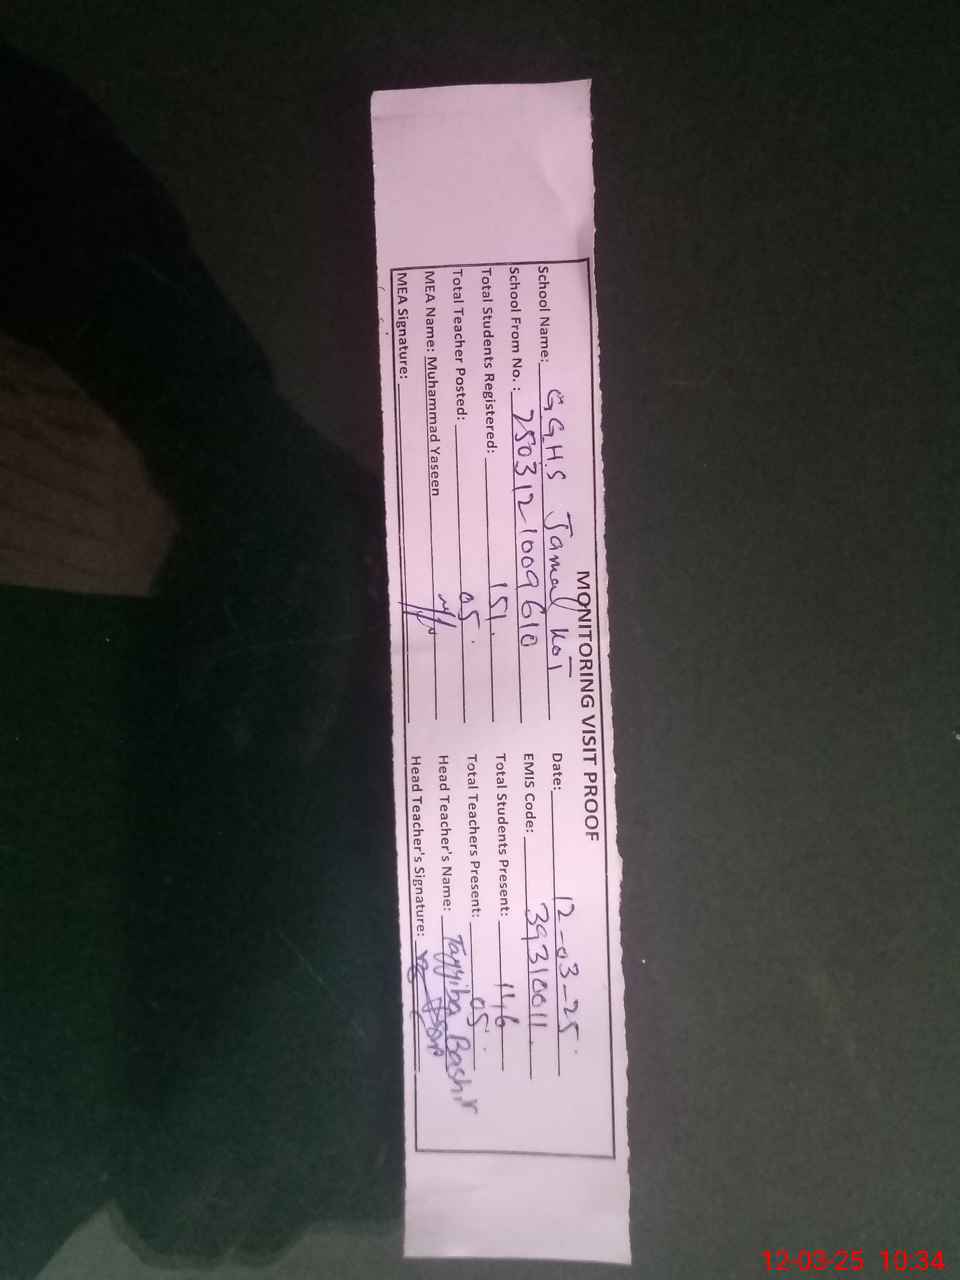 MONITORING VISIT PROOF
School Name: GGHS Jamal Kot Date: 12-03-25
School From No. : 2503121009610 EMIS Code: 39310011
Total Students Registered: 151 Total Students Present: 116
Total Teacher Posted: 05 Total Teachers Present: 05
MEA Name: Muhammad Yaseen Head Teacher's Name: Tayyiba Bashir
MEA Signature: Head Teacher's Signature:
12-03-25 10:34